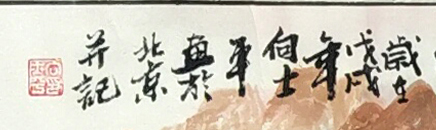 歲在
戊戌
年
向士
平
畫於
北京
并記